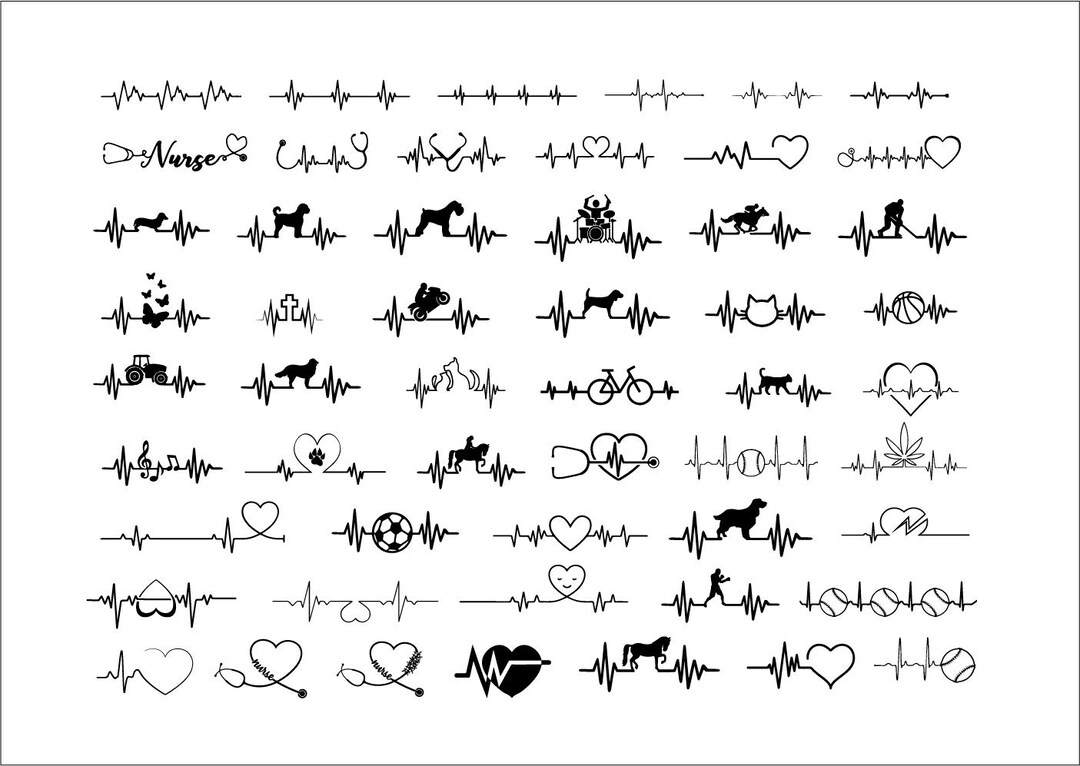 Nurse
nurse
nurse